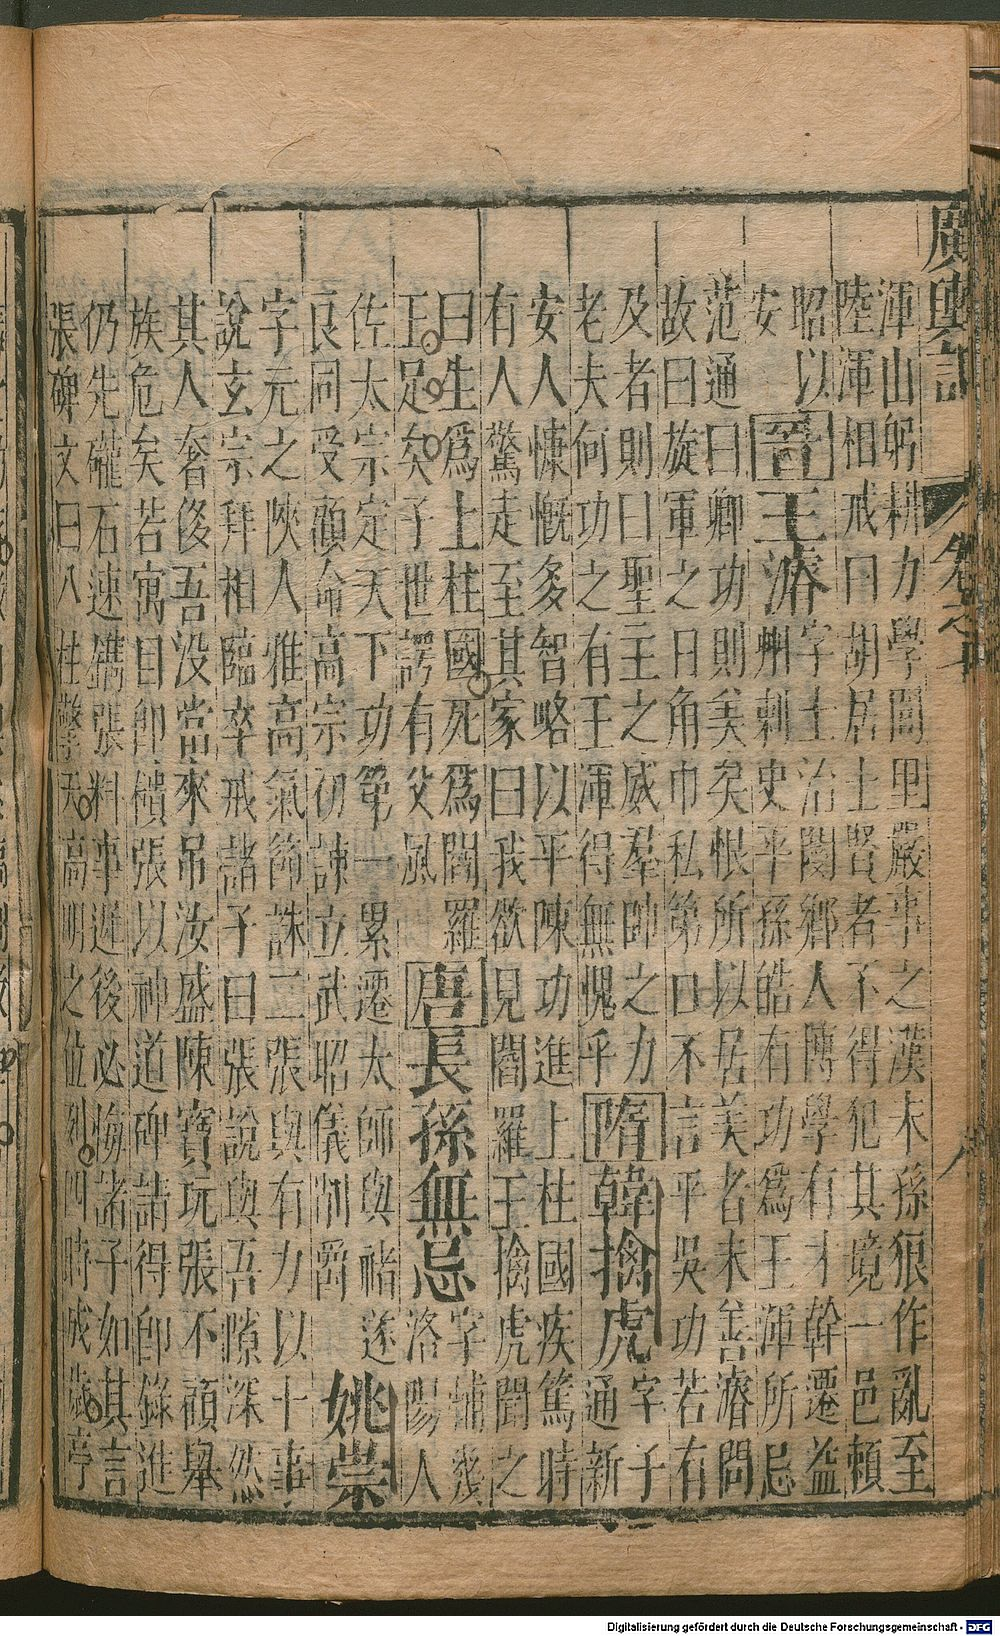 廣輿記
卷之十
八
渾山躬耕力學閭里嚴事之漢末孫狼作亂至
陸渾相戒曰胡居士賢者不得犯其境一邑賴
昭以
安
晉
王濬
字士治閿鄉人博學有才幹遷益
州刺史平孫皓有功為王渾所忌
范通曰卿功則美矣恨所以居美者未善濬問
故曰旋軍之日角巾私第口不言平吳功若有
及者則曰聖主之威羣帥之力
老夫何功之有王渾得無愧乎
隋
韓擒虎
字子
通新
安人慷慨多智略以平陳功進上柱國疾篤時
有人驚走至其家曰我欲見閻羅王擒虎聞之
曰生為上柱國死為閻羅
王足矣子世諤有父風
唐
長孫無忌
字輔幾
洛陽人
佐太宗定天下功第一累遷太師與褚遂
良同受顧命高宗初諫立武昭儀削爵
姚崇
字元之陝人雅高氣節誅二張與有力以十事
說玄宗拜相臨卒戒諸子曰張說與吾隙深然
其人奢侈吾没當來吊汝盛陳寶玩張不顧舉
族危矣若寓目卽樻張以神道碑請得卽錄進
仍先礲石速鐫張料事遲後必悔諸子如其言
張碑文曰八柱擎天高明之位列四時成歲亭
Digitalisierung gefördert durch die Deutsche Forschungsgemeinschaft - DFG